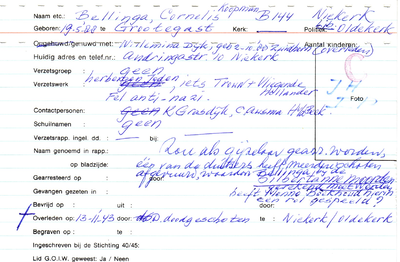 Koopman
Naam etc.: Bellinga, Cornelis B144 Niekerk
Geboren: 19.5.88 te: Grootegast Kerk: Politiek: Oldekerk
Ongehuwd/gehuwd met: N. Tiemina Dijk, geb. Zuidhorn (overleden) Aantal kinderen:
Huidig adres en telef.nr.: Andringastr 10 Niekerk
Verzetsgroep : geen
Verzetswerk : herbergen Joden, iets Trouw + Vliegende Hollander
Fel anti-nazi. Foto:
Contactpersonen: geen K Grasdijk, Clausma H
Schuilnamen : geen
Verzetsrapp. ingel dd. : bij
Naam genoemd in rapp.: Zou als gijzelaar gearr. worden,
op bladzijde: één van de duitsers heeft meerdere schoten
Gearresteerd op : afgevuurd, waardoor Bellinga bij de
Silbertanne moorden
Gevangen gezeten in : gerekend moet worden
heeft Menno een rol gespeeld?
Bevrijd op : uit :
Overleden op: 13-11.43 door: S.D. doodgeschoten te : Niekerk/Oldekerk
Begraven op : te :
Ingeschreven bij de Stichting 40/45:
Lid G.O.I.W. geweest: Ja / Neen